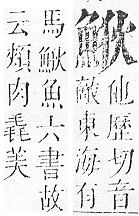 他歷切音
敵東海有
馬魚六書故
云頰肉毳美